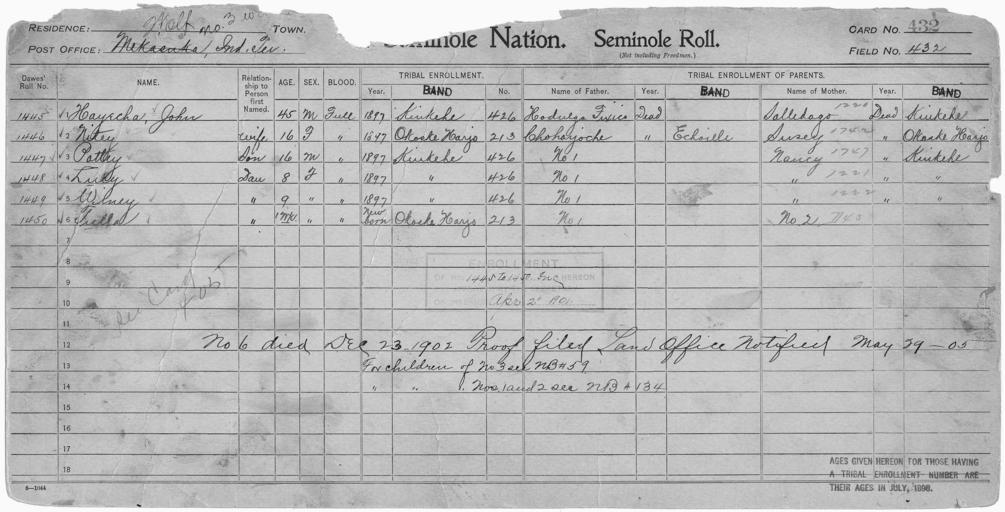 RESIDENCE: Wolf No. 3 TOWN.
POST OFFICE: Mekasuka, Ind. Ter.
Seminole Nation. Seminole Roll.
(Not including Freedmen.)
CARD NO. 432
FIELD NO. 432
Dawes' Roll No. NAME. Relationship to Person first Named. AGE. SEX. BLOOD. TRIBAL ENROLLMENT. Year. BAND No. TRIBAL ENROLLMENT OF PARENTS. Name of Father. Year. BAND Name of Mother. Year. BAND
1445 1 Hayecha, John 45 M Full 1897 Kinkehe 426 Hodulga Fixico Dead Salledago 1220 Dead Kinkehe
1446 2 wife 16 F " 1897 Okoske Harjo 213 Choharjoche " Echoille Susey 1742 " Okoske Harjo
1447 3 Son 16 M " 1897 Kinkehe 426 No 1 Nancy 1747 " Kinkehe
1448 4 Dau 8 F " 1897 " 426 No 1 " 1221 " "
1449 5 " 9 " " 1897 " 426 No 1 " 1222 " "
1450 6 " 1 Mo. " " New born Okoske Harjo 213 No 1 No 2
7
8
ENROLLMENT
9 1445 to 1450 Inc HEREON
10 Apr 2 1901
11
12 No 6 died Dec 23 1902 Proof filed Land Office Notified May 29-05
13 For children of No 3 see NB#59
14 " " " Nos 1 and 2 see NB#134
15
16
17
18
6—1044
AGES GIVEN HEREON FOR THOSE HAVING
A TRIBAL ENROLLMENT NUMBER ARE
THEIR AGES IN JULY, 1898.